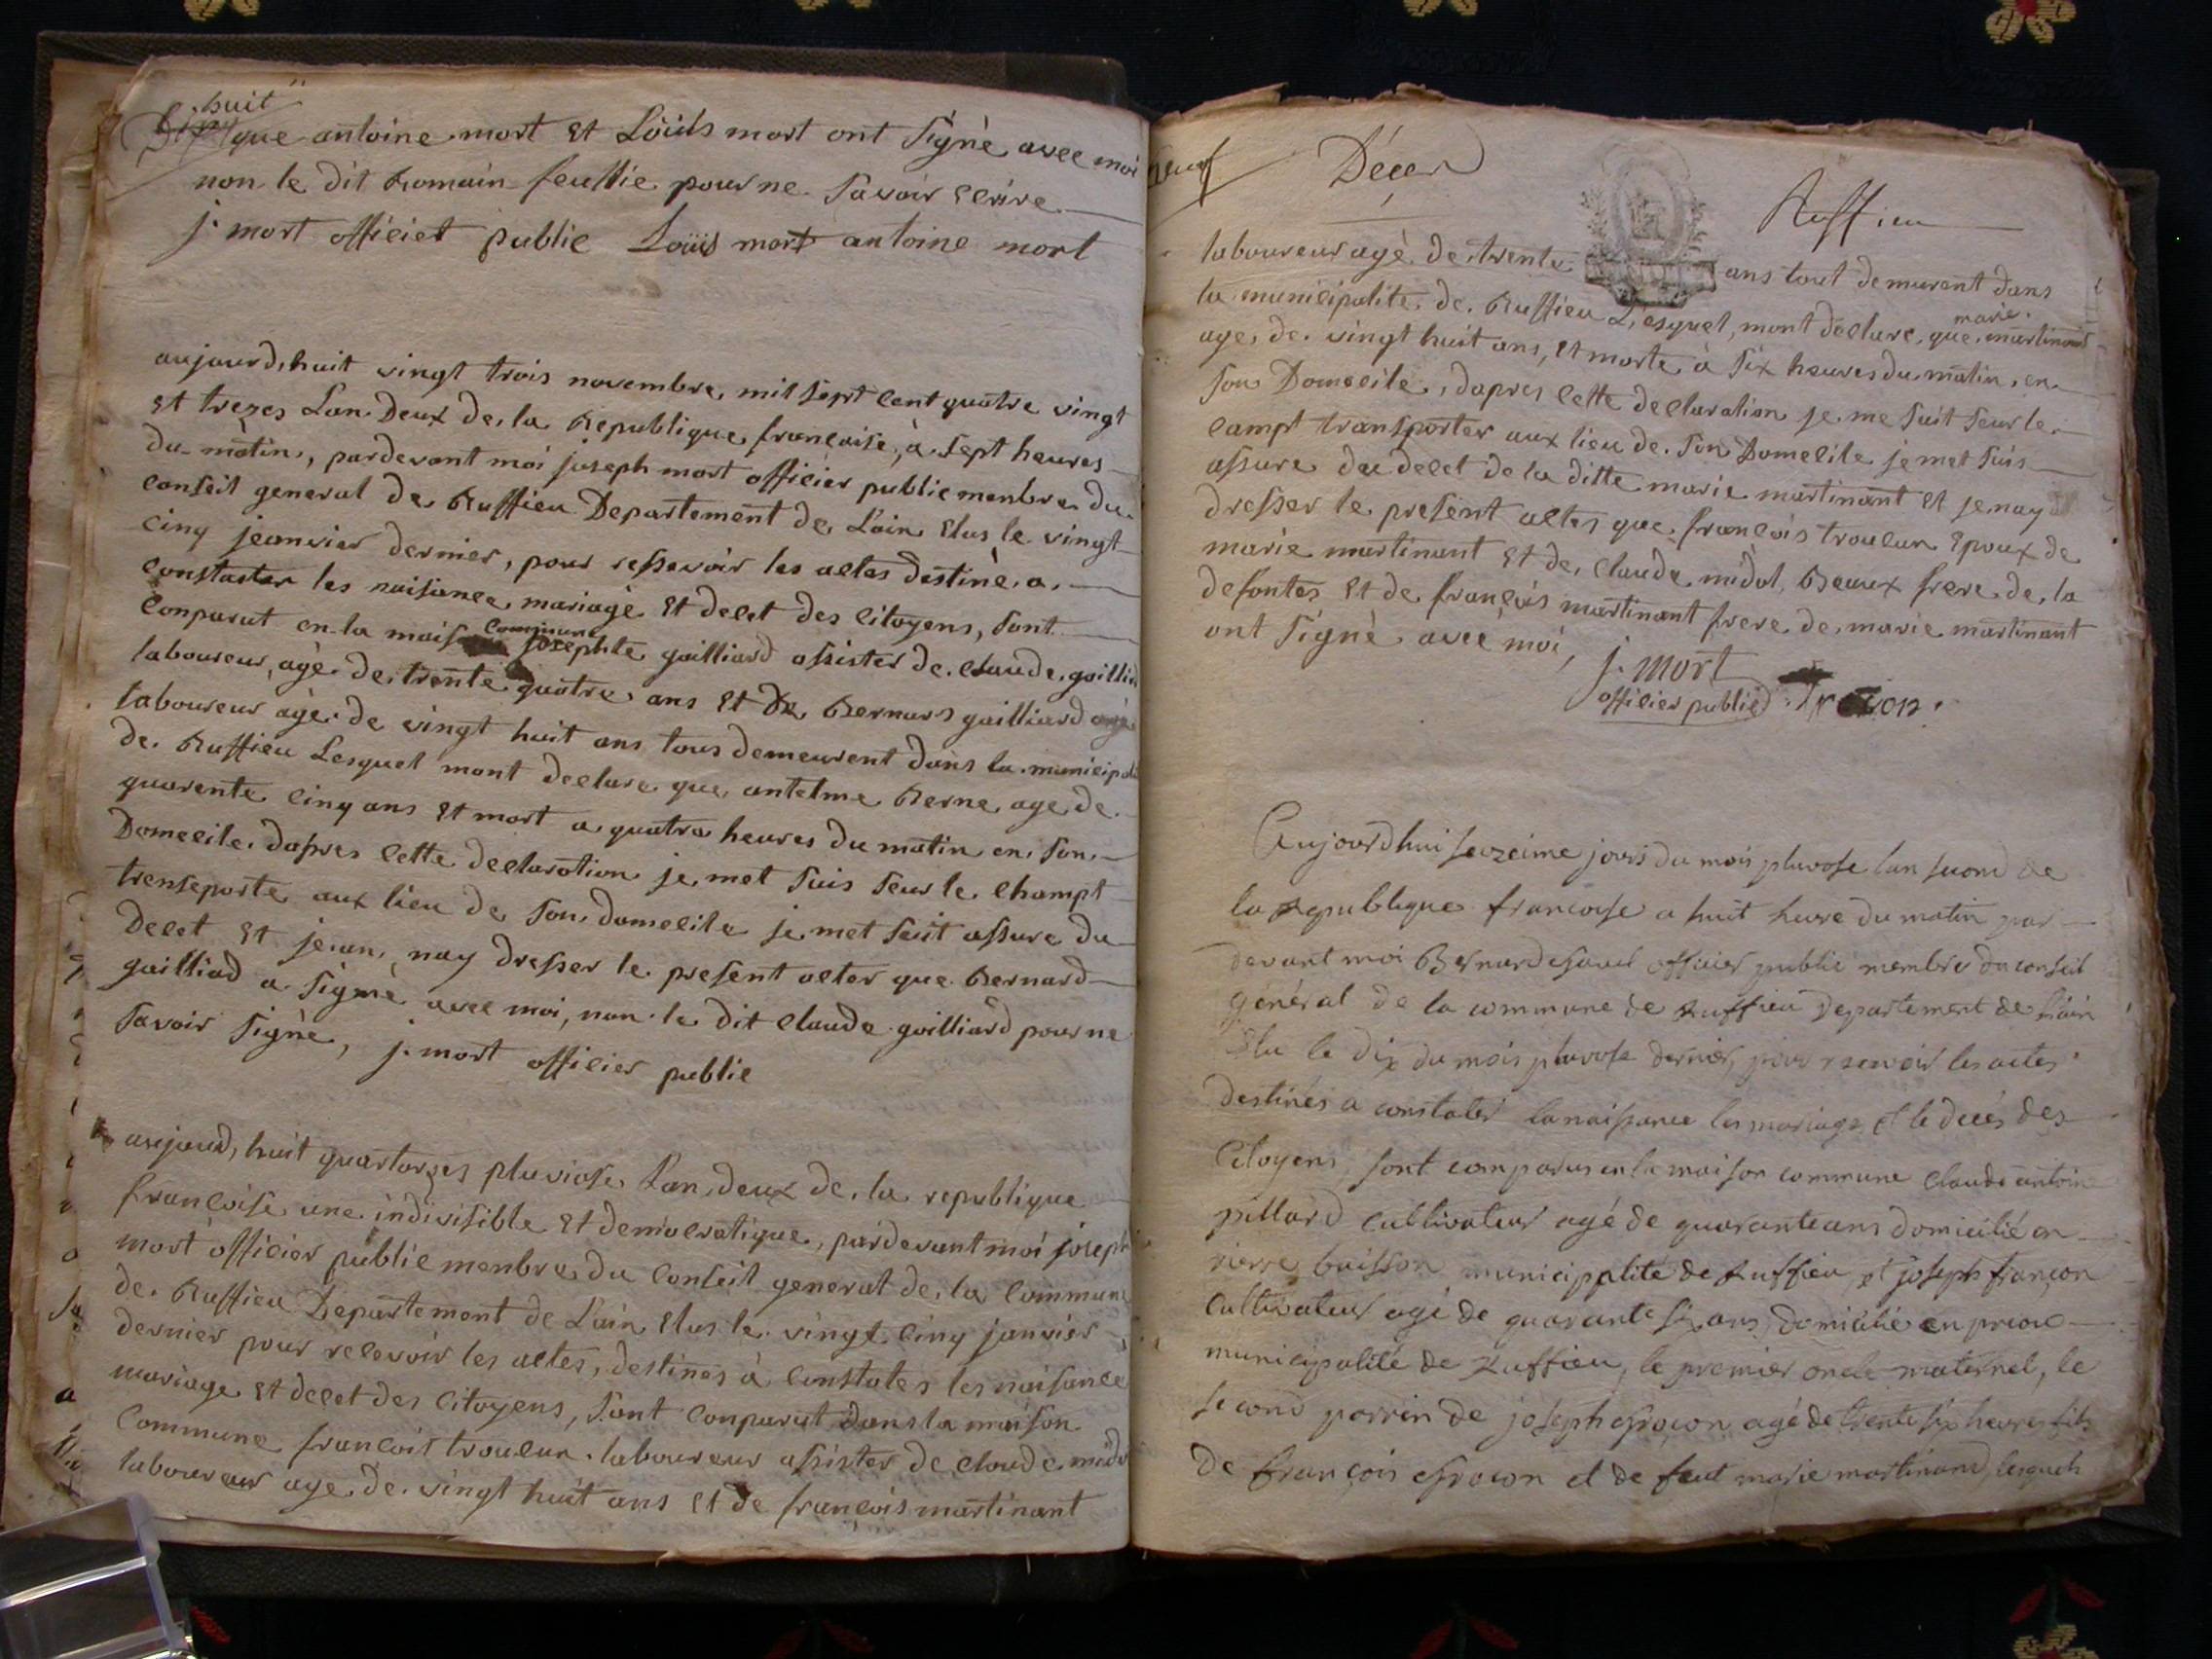 huit
que antoine mort et Loüis mort ont signè avec moi
non le dit Romain feultie pour ne savoir ecrire
j. mort officiet public Loüis mort antoine mort
aujourd,huit vingt trois novembre mil sept cent quatre vingt
et trezes Lan Deux de la Republique francoise, à sept heures
du matin, pardevant moi joseph mort officier public menbre du
conseit general de Ruffieu Departement de Lain Elus le vingt
cinq jeanvier dernier, pour ressevoir les actes destinè a
constater les naisance, mariage et decet des citoyens, sont
conparut en la maison commune josephte gailliard assister de claude gailliard
laboureur, agè de trente quatre ans et de Bernard gailliard
laboureur agè de vingt huit ans tous demeurent dans la municipalite
de Ruffieu Lesquel mont declare que antelme Berne age de
quarente cinq ans et mort a quatre heures du matin en son
Domecile dapres cette declaration je met suis seur le champt
trenseporte aux lieu de son domecile je met suit assure du
decet et jean nay dresser le present acter que Bernard
gailliad a signè avec moi, non le dit claude gailliard pour ne
savoir signè, j. mort officier public
aujourd,huit quartorzes pluviose Lan deux de la republique
francoise une indivisible et democratique, pardevant moi joseph
mort officier public menbre du conseit generat de la commune
de Ruffieu Departement de Lain Elus le vingt cinq janvier
dernier pour recevoir les actes, destines à constates les naisance
mariage et decet des citoyens, sont conparut dans la maison
commune francois troueur laboureur assister de claude midol
laboureur age de vingt huit ans et de francois martinant
neuf Décer Ruffieu
laboureur agè de trente ans tout demurent dans
la municipalite de Ruffieu L,esquel, mont declare que marie martinant
age de vingt huit ans, et morte à six heures du matin, en
son Domecile, dapres cette declaration je me suit seur le
campt transporter aux lieu de son Domecile je met suis
assure du decet de la ditte marie martinant et je nay
dresser le present actes que francois troueur Epoux de
marie martinant et de claude midol, Beaux frere de la
defontes et de francois martinant frere de marie martinant
ont signè avec moi, j. mort
officier public
Aujourdhui seozeime jours du mois pluvose lan second de
la republique francoise a huit heure du matin par
devant moi Bernard officier public membre du conseil
général de la commune de Ruffieu Departement de Lain
Elu le dix du mois pluvose dernier, pour recevoir les actes
destinés a constater la naissance les mariage et le decés des
Citoyens, sont comparus en la maison commune claude antoine
pillard cultivateur agé de quarante ans domicilié en
municippalite de Ruffieu et joseph françon
cultivateur agé de quarante six ans, domicilié en
municipalité de Ruffieu, le premier oncle maternel, le
second parrin de joseph agé de trente six heures fils
de françois et de feut marie martinand, lesquels